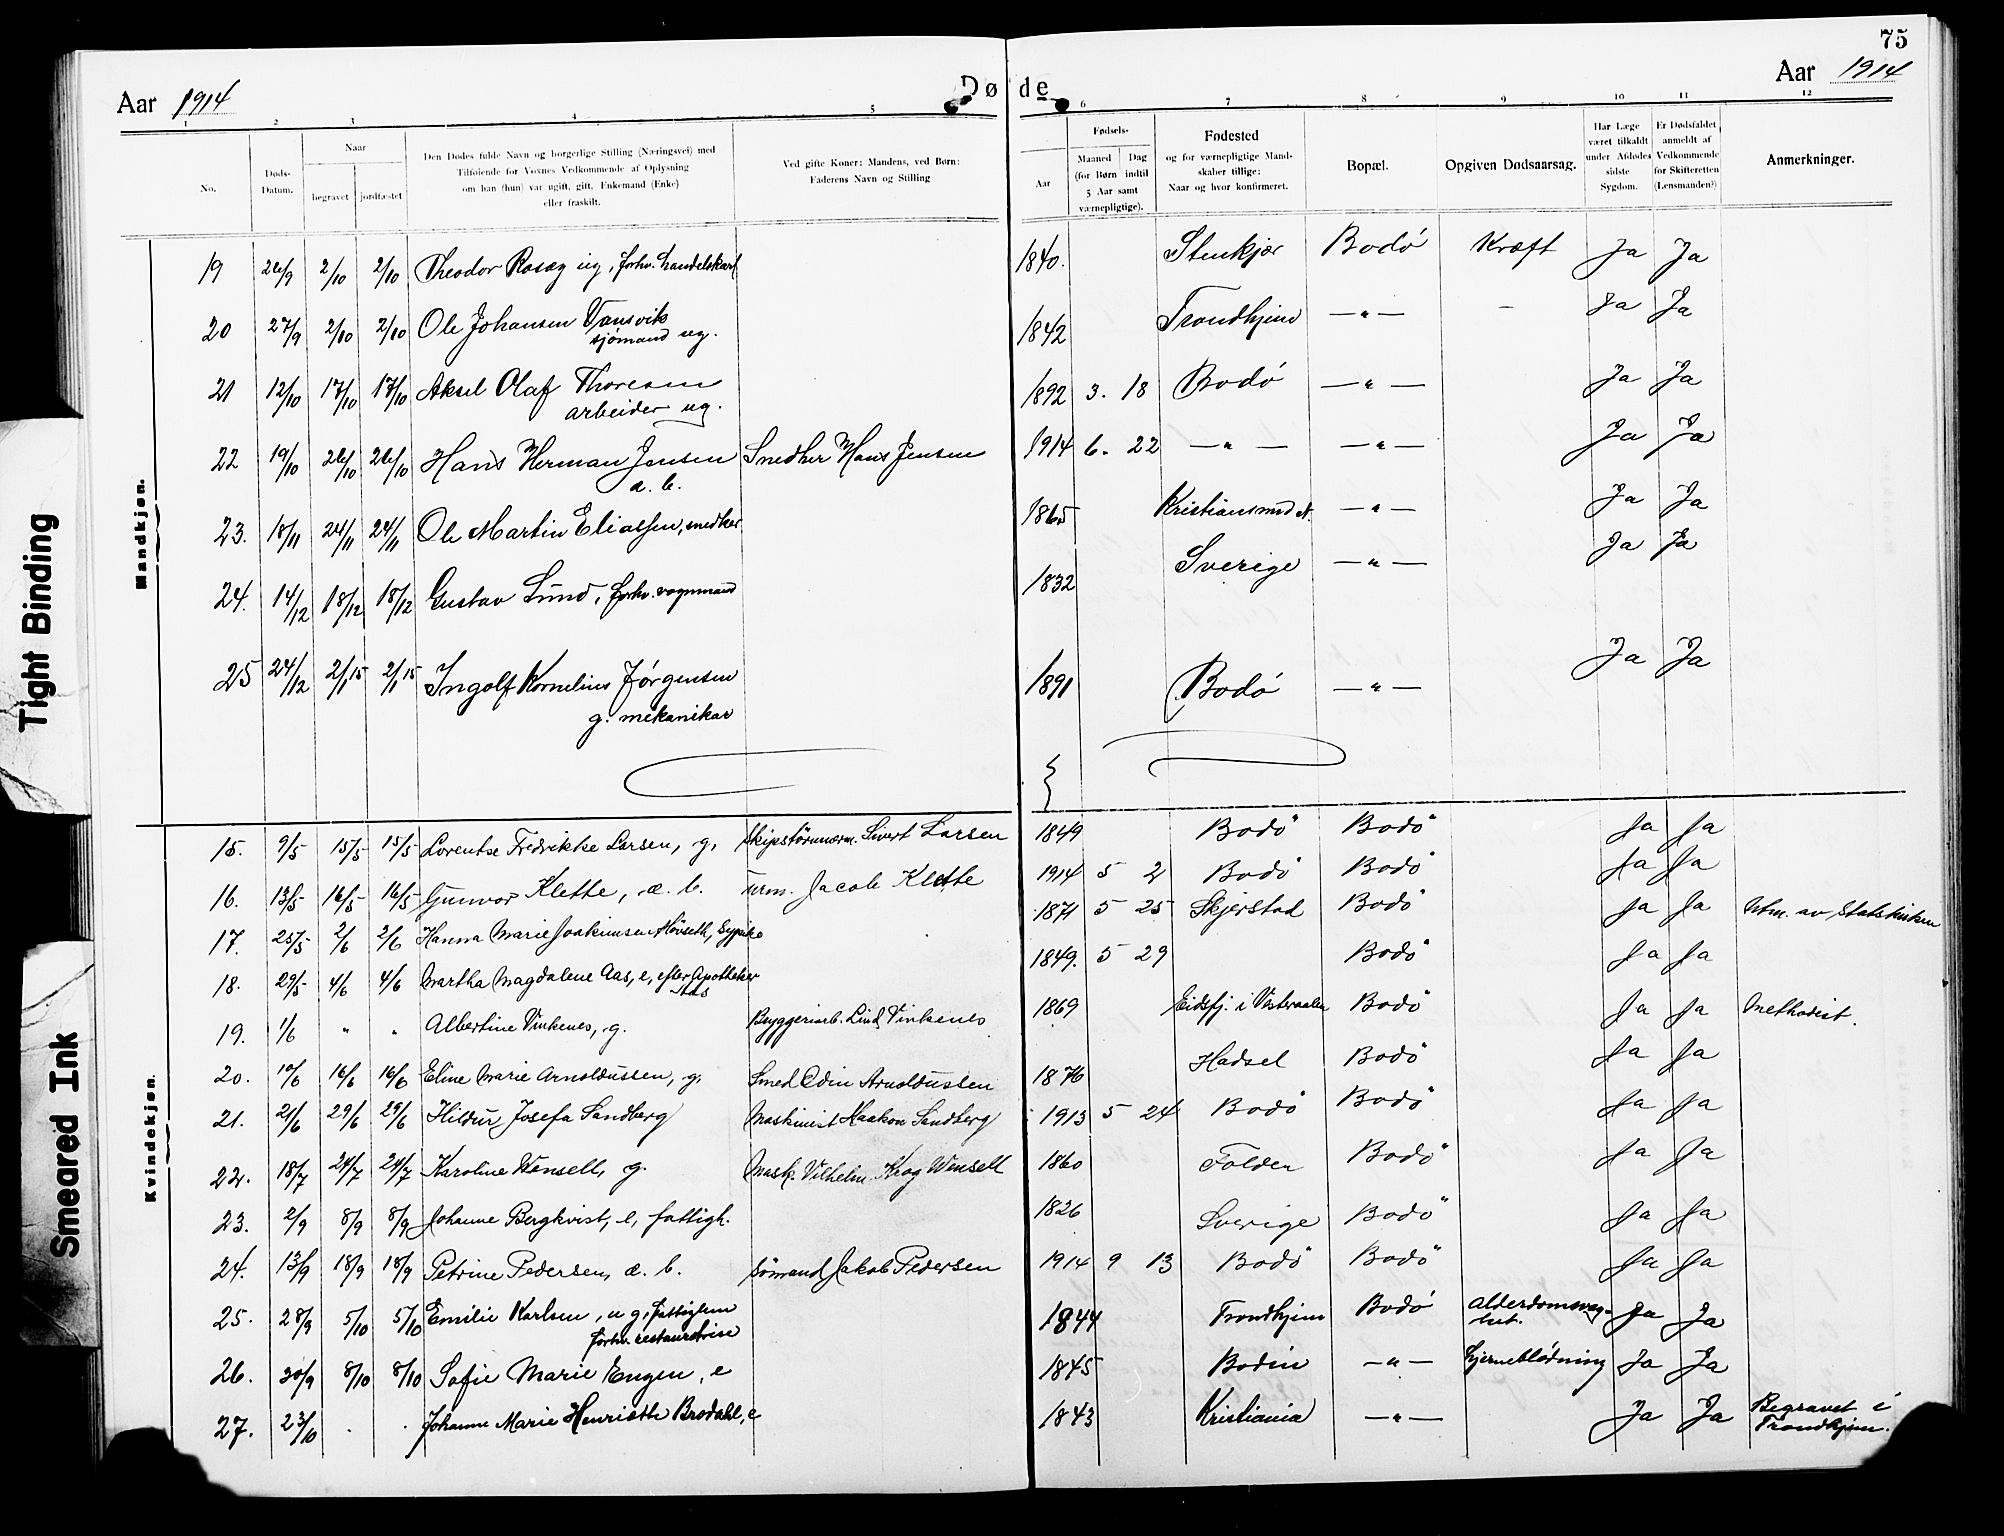 75
Aar 1914
Døde
Aar 1914
1 2 3 4 5 6 7 8 9 10 11 12
No.
Døds-
Datum.
Naar
begravet
jordfæstet
Den Dødes fulde Navn og borgerlige Stilling (Næringsvei) med
Tilføiende for Voxnes Vedkommende af Oplysning
om han (hun) var ugift, gift, Enkemand (Enke)
eller fraskilt.
Ved gifte Koner: Mandens, ved Børn:
Faderens Navn og Stilling
Fødsels-
Aar
Maaned Dag
(for Børn indtil
5 Aar samt
værnepligtige).
Fødested
og for værnepligtige Mand-
skaber tillige:
Naar og hvor konfirmeret.
Bopæl.
Opgiven Dødsaarsag.
Har Læge
været tilkaldt
under Afdødes
sidste
Sygdom.
Er Dødsfaldet
anmeldt af
Vedkommende
for Skifteretten
(Lensmanden?)
Anmerkninger.
Mandkjøn.
19 26/9 2/10 2/10 Theodor Rosøg ug, forhv. handelskarl 1840. Stenkjær Bodø Kræft Ja Ja
20 27/9 2/10 2/10 Ole Johansen Vansvik 1842 Trondhjem —"— - Ja Ja
sjømand ug.
21 12/10 17/10 17/10 Aksel Olaf Thoresen 1892 3. 18 Bodø —"— Ja Ja
arbeider ug.
22 19/10 26/10 26/10 Hans Herman Jensen Snedker Hans Jensen 1914 6. 22 —"— —"— Ja Ja
a. b.
23. 18/11 24/11 24/11 Ole Martin Eliassen, snedker 1865 Kristiansund N. —"— Ja Ja
24. 14/12 18/12 18/12 Gustav Lund, forhv. vognmand 1832 Sverige —"— Ja Ja
25 24/12 2/1 15 2/1 15 Ingolf Kornelius Jørgensen 1891 Bodø —"— Ja Ja
g. mekanikar
Kvindekjøn.
15. 9/5 15/5 15/5 Lorentse Fredrikke Larsen, g. Skipstømmerm. Sivert Larsen 1849 Bodø Bodø Ja Ja
16. 13/5 16/5 16/5 Gunvor Klette, æ. b. urm. Jacob Klette 1914 5 2 Bodø Bodø Ja Ja
17. 25/5 2/6 2/6 Hanna Marie Joakimsen Høvseth, Sypike 1871 5 25 Skjerstad Bodø Ja Ja Utm. av Statskirken
18. 29/5 4/6 4/6 Martha Magdalene Aas, e, efter Apotheker 1849. 5 29 Bodø Ja Ja
Aas
19. 1/6 " " Albertine Vinkenes, g. Bryggeriarb. Lind Vinkenes 1869 Eidsfj. i Vesteraalen Bodø Ja Ja Methodist.
20. 10/6 16/6 16/6 Eline Marie Arnoldussen, g. Smed Odin Arnoldussen 1876 Hadsel Bodø Ja Ja
21. 21/6 29/6 29/6 Hildur Josefa Sandberg Maskinist Haakon Sandberg 1913 5 24 Bodø Bodø Ja Ja
22. 18/7 24/7 24/7 Karoline Wensell, g. Mask. Vilhelm Krog Wensell 1860 Folden Bodø Ja Ja
23. 2/9 8/9 8/9 Johanne Bergkvist, e, fattigh. 1826 Sverige Bodø Ja Ja
24. 13/9 18/9 18/9 Petrine Pedersen, æ. b. sømand Jakob Pedersen 1914 9 13 Bodø Bodø Ja Ja
25. 28/9 5/10 5/10 Emilie Karlsen, u g, fattiglem 1844 Trondhjem Bodø Alderdomsvag- Ja Ja
forhv. restauratrise het.
26. 30/9 8/10 8/10 Sofie Marie Engen, e 1845 Bodin —"— hjerneblødning Ja Ja
27. 23/10 . . Johanne Marie Henriette Brodahl, e 1843 Kristiania —"— Ja Ja Begravet i
Trondhjem.
Tight Binding
Smeared Ink